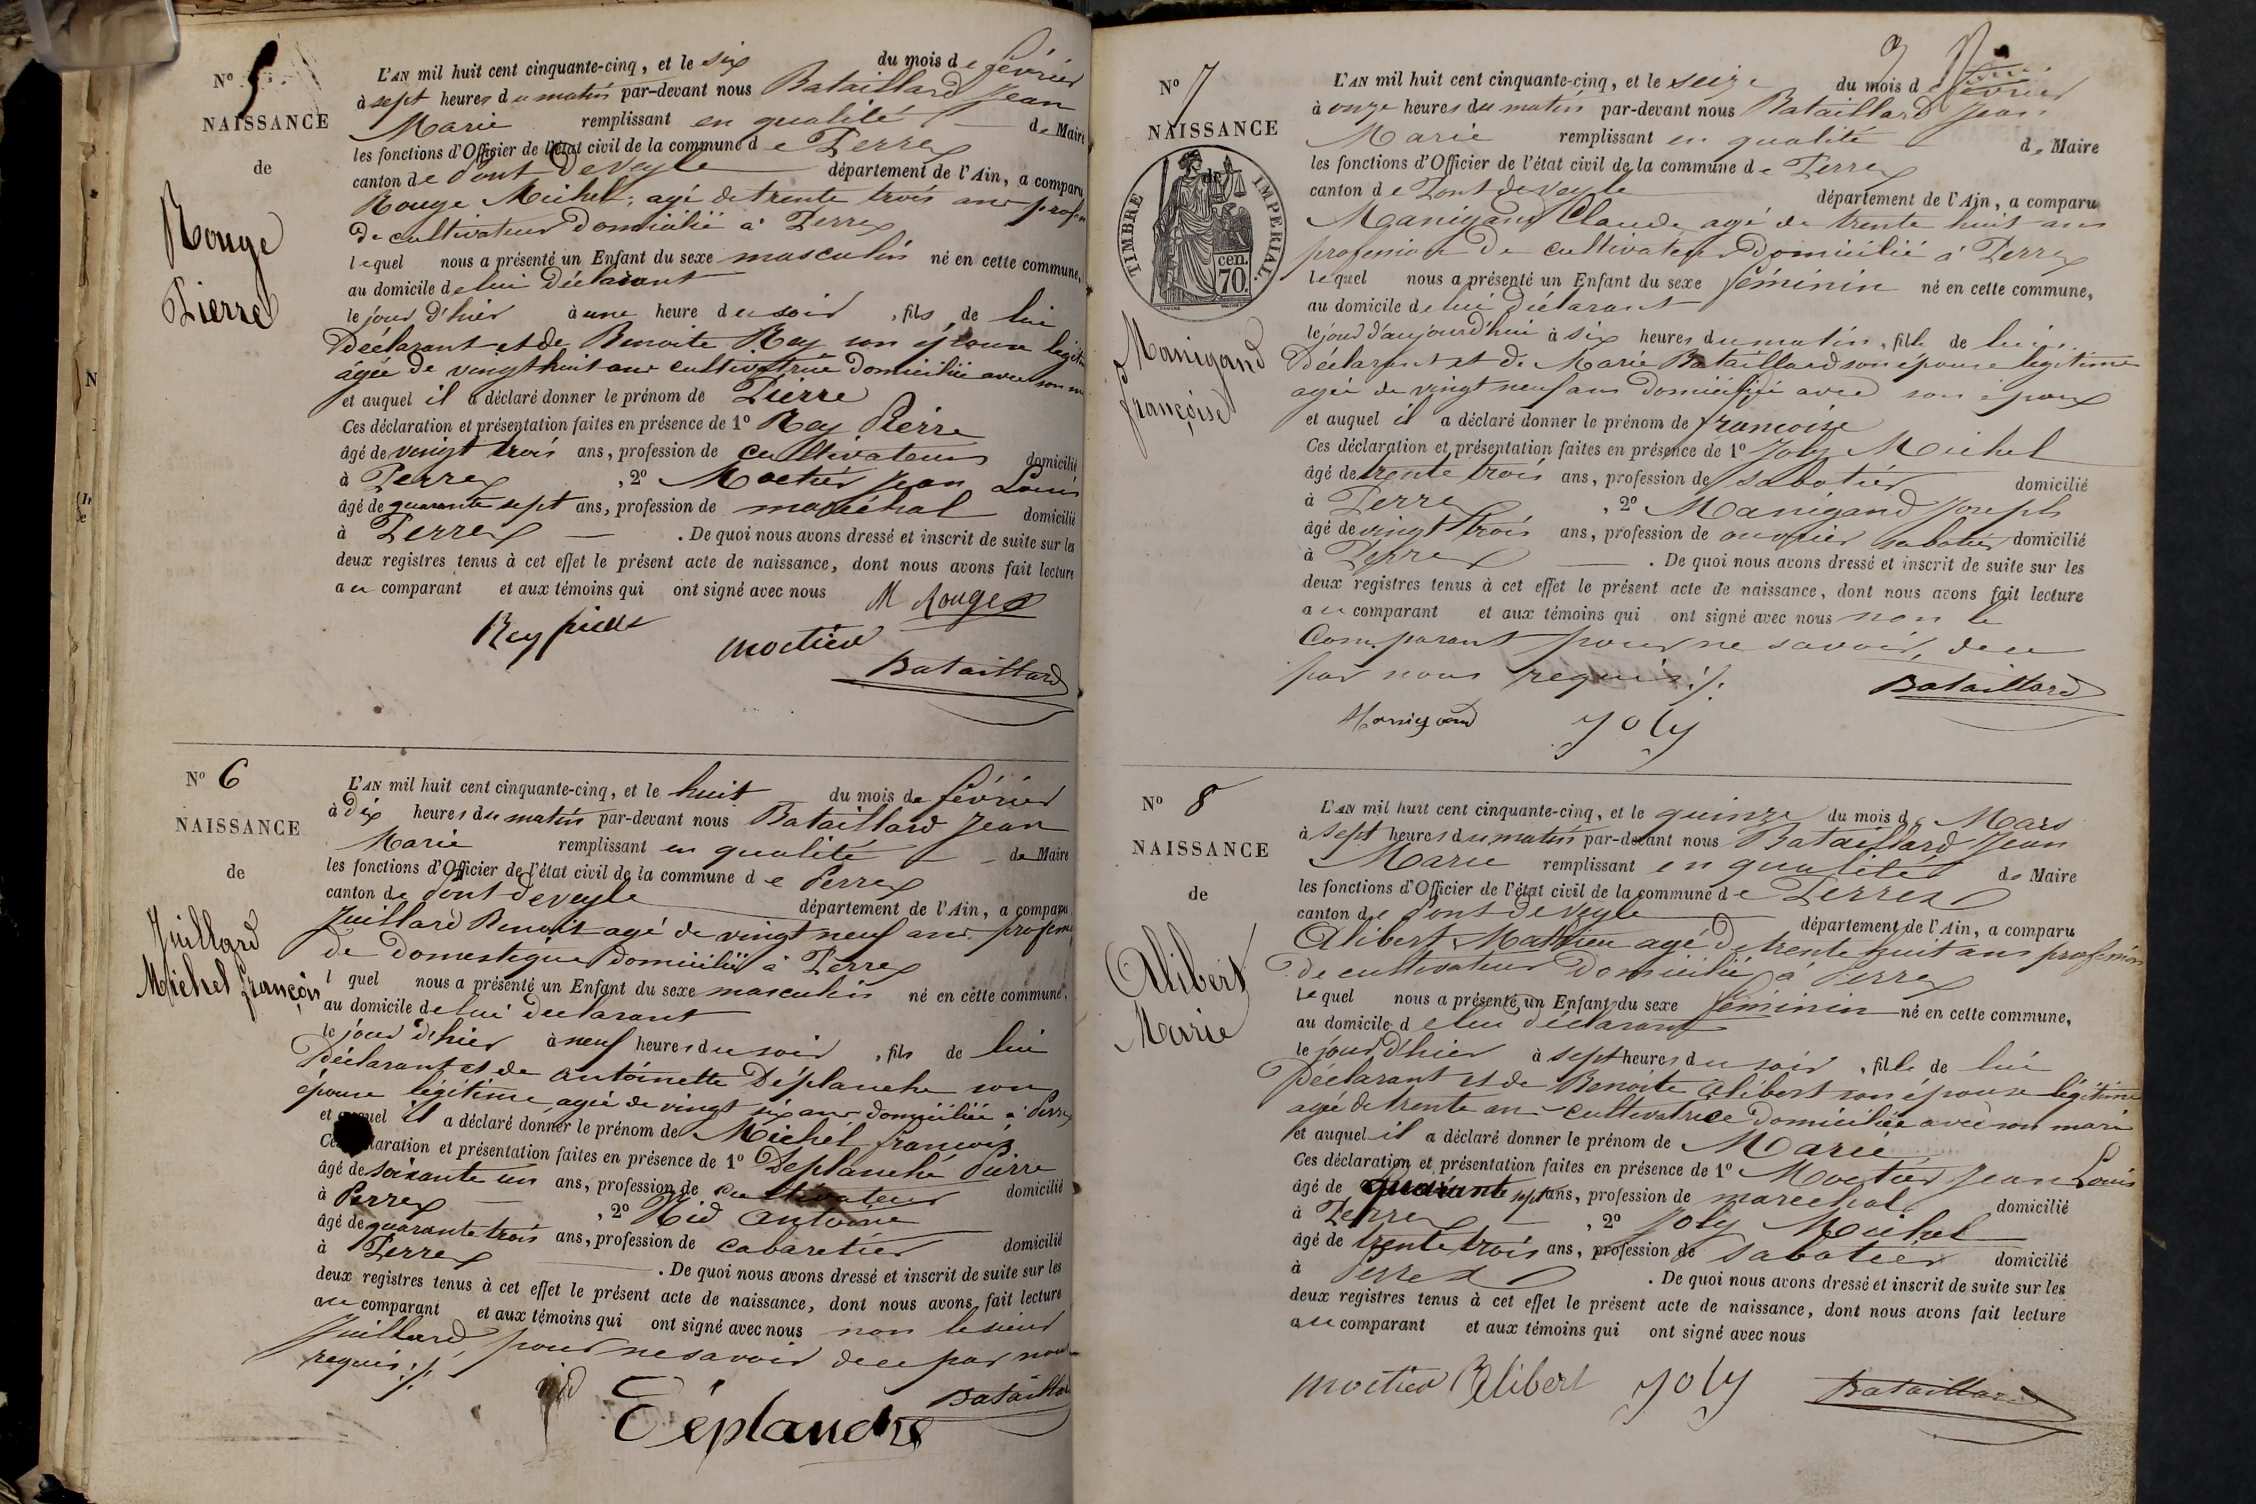 N° 5
NAISSANCE
de
Rouge
Pierre
L'AN mil huit cent cinquante-cinq, et le six du mois de février
à sept heures du matin par-devant nous Bataillard Jean
Marie remplissant en qualité de Maire
les fonctions d'Officier de l'état civil de la commune de Perrex
canton de Pont de veyle département de l'Ain, a comparu
Rouge Michel, agé de trente trois ans profession
de cultivateur domicilié à Perrex
lequel nous a présenté un Enfant du sexe masculin né en cette commune,
au domicile de lui Déclarant
le jour d'hier à une heure du soir, fils de lui
Déclarant et de Benoite Rey son épouse légitime
agée de vingt huit ans cultivatrice domiciliée avec son mari
et auquel il a déclaré donner le prénom de Pierre
Ces déclaration et présentation faites en présence de 1° Rey Pierre
âgé de vingt trois ans, profession de cultivateur domicilié
à Perrex, 2° Moctier Jean Louis
âgé de quarante sept ans, profession de maréchal domicilié
à Perrex. De quoi nous avons dressé et inscrit de suite sur les
deux registres tenus à cet effet le présent acte de naissance, dont nous avons fait lecture
au comparant et aux témoins qui ont signé avec nous M Rouge
Rey pierre moctier
Bataillard
N° 6
NAISSANCE
de
Juillard
Michel françois
L'AN mil huit cent cinquante-cinq, et le huit du mois de février
à dix heures du matin par-devant nous Bataillard Jean
Marie remplissant en qualité de Maire
les fonctions d'Officier de l'état civil de la commune de Perrex
canton de Pont de veyle département de l'Ain, a comparu
Juillard Benoit agé de vingt neuf ans profession
de domestique domicilié à Perrex
l quel nous a présenté un Enfant du sexe masculin né en cette commune,
au domicile de lui déclarant
le jour d'hier à neuf heures du soir, fils de lui
Déclarant et de antoinette Déplanche son
épouse légitime agée de vingt six ans domiciliée à Perrex
et auquel il a déclaré donner le prénom de Michel françois
Ces déclaration et présentation faites en présence de 1° Deplanche Pierre
âgé de soixante un ans, profession de cultivateur domicilié
à Perrex, 2° Nid antoine
âgé de quarante trois ans, profession de cabaretier domicilié
à Perrex. De quoi nous avons dressé et inscrit de suite sur les
deux registres tenus à cet effet le présent acte de naissance, dont nous avons fait lecture
au comparant et aux témoins qui ont signé avec nous non le sieur
Juillard, pour ne savoir de ce par nous
requis ./.
nid Bataillard
Déplanche
N° 7
NAISSANCE
de
TIMBRE IMPERIAL.
cen.
70
Manigand
françoise
L'AN mil huit cent cinquante-cinq, et le seize du mois de février
à onze heures du matin par-devant nous Bataillard Jean
Marie remplissant en qualité de Maire
les fonctions d'Officier de l'état civil de la commune de Perrex
canton de Pont de veyle département de l'Ain, a comparu
Manigand Claude, agé de trente huit ans
profession de cultivateur domicilié à Perrex
lequel nous a présenté un Enfant du sexe féminin né en cette commune,
au domicile de lui déclarant
le jour d'aujourd'hui à six heures du matin, fille de lui
Déclarant et de Marie Bataillard son épouse légitime
agée de vingt neuf ans domiciliée avec son époux
et auquel il a déclaré donner le prénom de françoise
Ces déclaration et présentation faites en présence de 1° Joly Michel
âgé de trente trois ans, profession de sabotier domicilié
à Perrex, 2° Manigand Joseph
âgé de vingt trois ans, profession de ouvrier sabotier domicilié
à Perrex. De quoi nous avons dressé et inscrit de suite sur les
deux registres tenus à cet effet le présent acte de naissance, dont nous avons fait lecture
au comparant et aux témoins qui ont signé avec nous non le
Comparant pour ne savoir, de ce
par nous requis ./. Bataillard
Manigand Joly
N° 8
NAISSANCE
de
Alibert
Marie
L'AN mil huit cent cinquante-cinq, et le quinze du mois de Mars
à sept heures du matin par-devant nous Bataillard Jean
Marie remplissant en qualité de Maire
les fonctions d'Officier de l'état civil de la commune de Perrex
canton de Pont de veyle département de l'Ain, a comparu
Alibert Mathieu agé de trente huit ans profession
de cultivateur domicilié à Perrex
lequel nous a présenté un Enfant du sexe féminin né en cette commune,
au domicile de lui déclarant
le jour d'hier à sept heures du soir, fille de lui
Déclarant et de Benoite Alibert son épouse légitime
agée de trente ans cultivatrice domiciliée avec son mari
et auquel il a déclaré donner le prénom de Marie
Ces déclaration et présentation faites en présence de 1° Moctier Jean Louis
âgé de quarante sept ans, profession de maréchal domicilié
à Perrex, 2° Joly Michel
âgé de trente trois ans, profession de sabotier domicilié
à Perrex. De quoi nous avons dressé et inscrit de suite sur les
deux registres tenus à cet effet le présent acte de naissance, dont nous avons fait lecture
au comparant et aux témoins qui ont signé avec nous
moctier Alibert Joly Bataillard